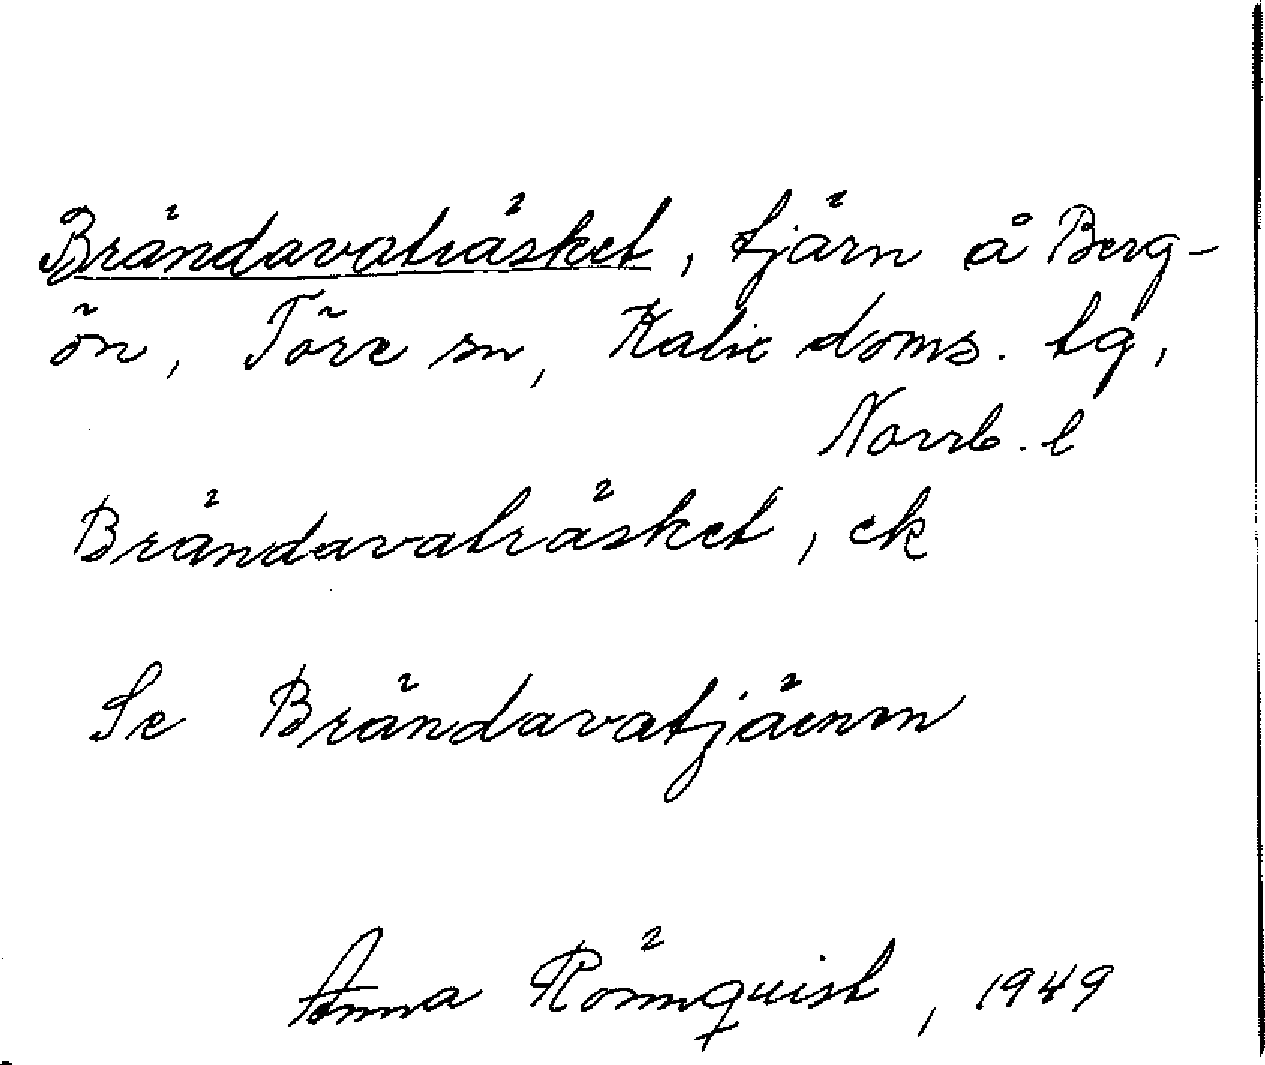 Brändavaträsket, tjärn å Berg-
ön, Töre sn, Kalix doms. tg,
Norrb. l
Brändavaträsket, ek
Se Brändavatjärnen
Anna Rönnquist, 1949